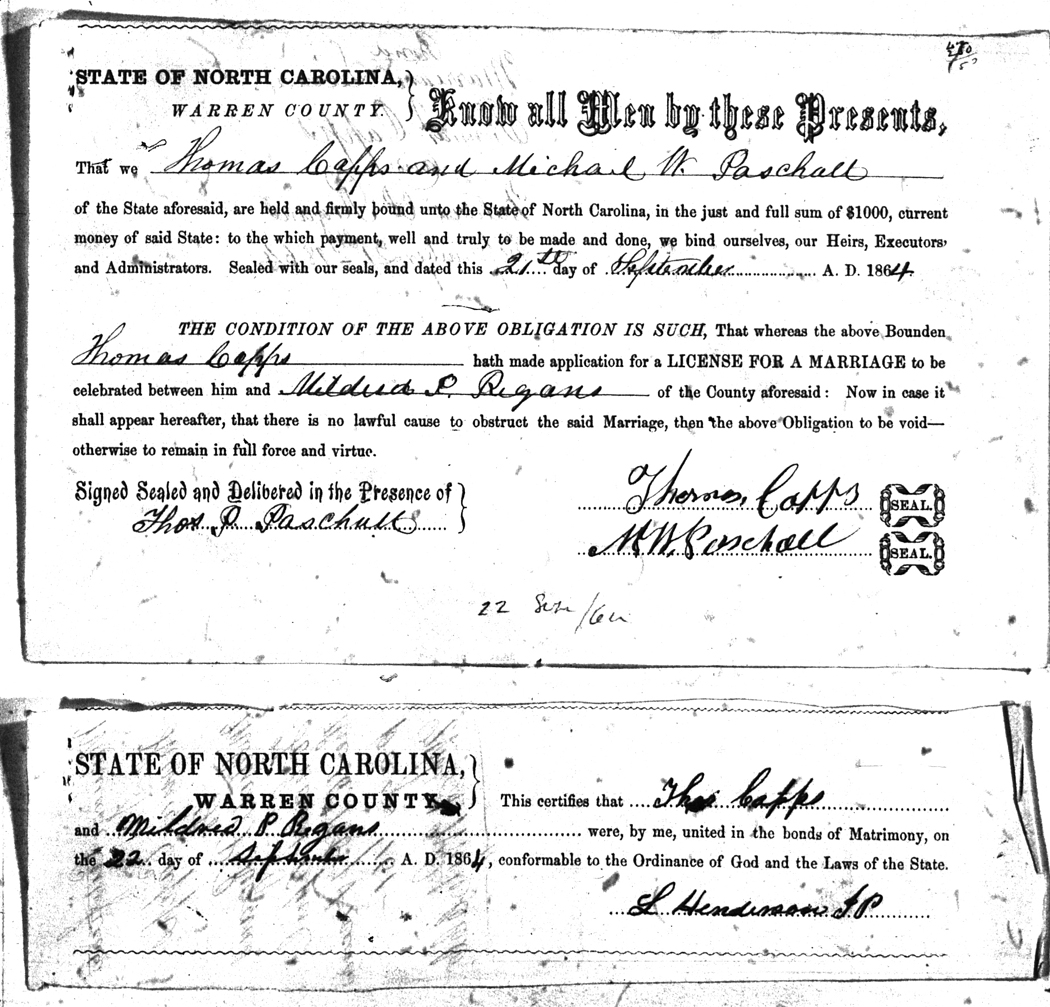 STATE OF NORTH CAROLINA,
WARREN COUNTY.
Know all Men by these Presents,
That we Thomas Capps and Michael W. Paschall
of the State aforesaid, are held and firmly bound unto the State of North Carolina, in the just and full sum of $1000, current
money of said State: to the which payment, well and truly to be made and done, we bind ourselves, our Heirs, Executors,
and Administrators. Sealed with our seals, and dated this 21st day of September A. D. 1864.
THE CONDITION OF THE ABOVE OBLIGATION IS SUCH, That whereas the above Bounden
Thomas Capps hath made application for a LICENSE FOR A MARRIAGE to be
celebrated between him and Mildred P. Regans of the County aforesaid: Now in case it
shall appear hereafter, that there is no lawful cause to obstruct the said Marriage, then the above Obligation to be void—
otherwise to remain in full force and virtue.
Signed Sealed and Delibered in the Presence of
Thos P. Paschall
Thomas Capps SEAL.
M W. Paschall SEAL.
22
STATE OF NORTH CAROLINA,
WARREN COUNTY
This certifies that Thos Capps
and Mildred P Regans were, by me, united in the bonds of Matrimony, on
the 22 day of September A. D. 1864, conformable to the Ordinance of God and the Laws of the State.
L Henderson J P